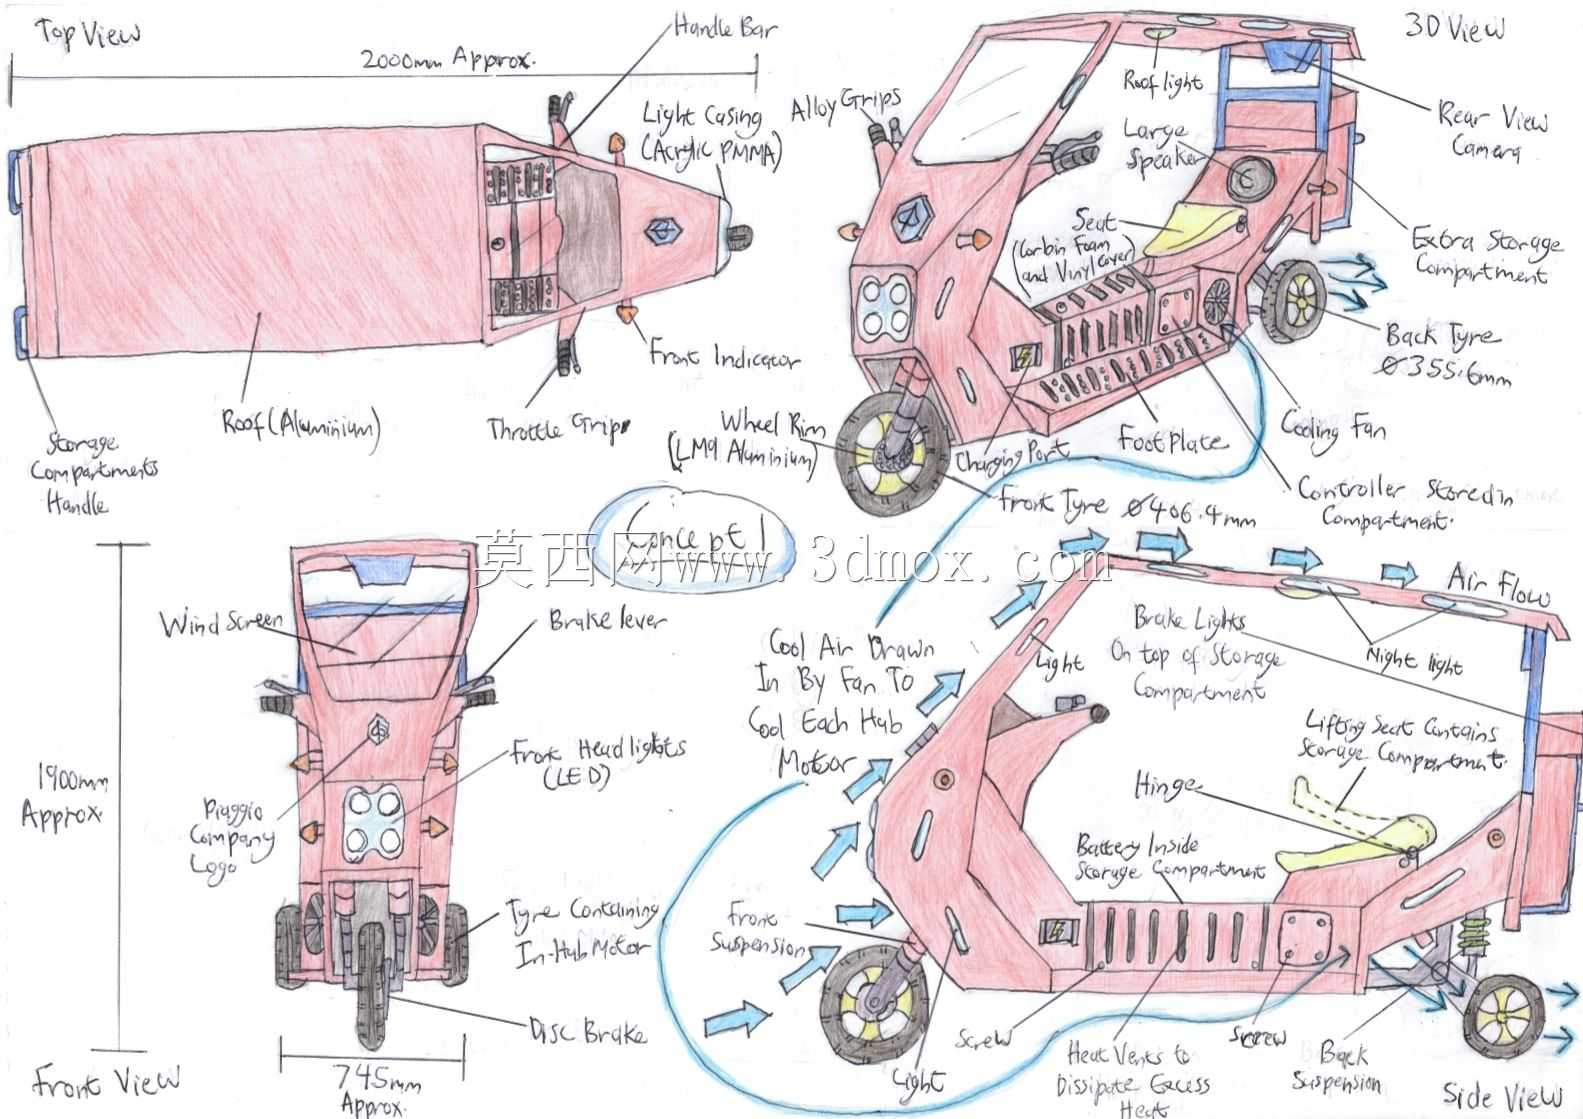 Top View
2000mm Approx.
Handle Bar
Light Casing
(Acrylic PMMA)
Front Indicator
Throttle Grips
Roof (Aluminium)
Storage
Compartments
Handle
3D View
Alloy Grips
Roof light
Large
Speaker
Rear View
Camera
Seat
(Corbin Foam
and Vinyl Cover)
Extra Storage
Compartment
Back Tyre
Ø355.6mm
Wheel Rim
(LM9 Aluminium)
Charging Port
Foot Plate
Cooling Fan
Front Tyre Ø406.4mm
Controller Stored in
Compartment.
Concept 1
莫西网www.3dmox.com
1900mm
Approx.
Wind Screen
Brake lever
Front Headlights
(LED)
Piaggio
Company
Logo
Tyre Containing
In-Hub Motor
Disc Brake
745mm
Approx.
Front View
Cool Air Drawn
In By Fan To
Cool Each Hub
Motor
Air Flow
Light
Brake Lights
On top of Storage
Compartment
Night light
Lifting Seat Contains
Storage Compartment.
Hinge
Battery Inside
Storage Compartment
Front
Suspension
Screw
Light
Heat Vents to
Dissipate Excess
Heat
Screw
Back
Suspension
Side View